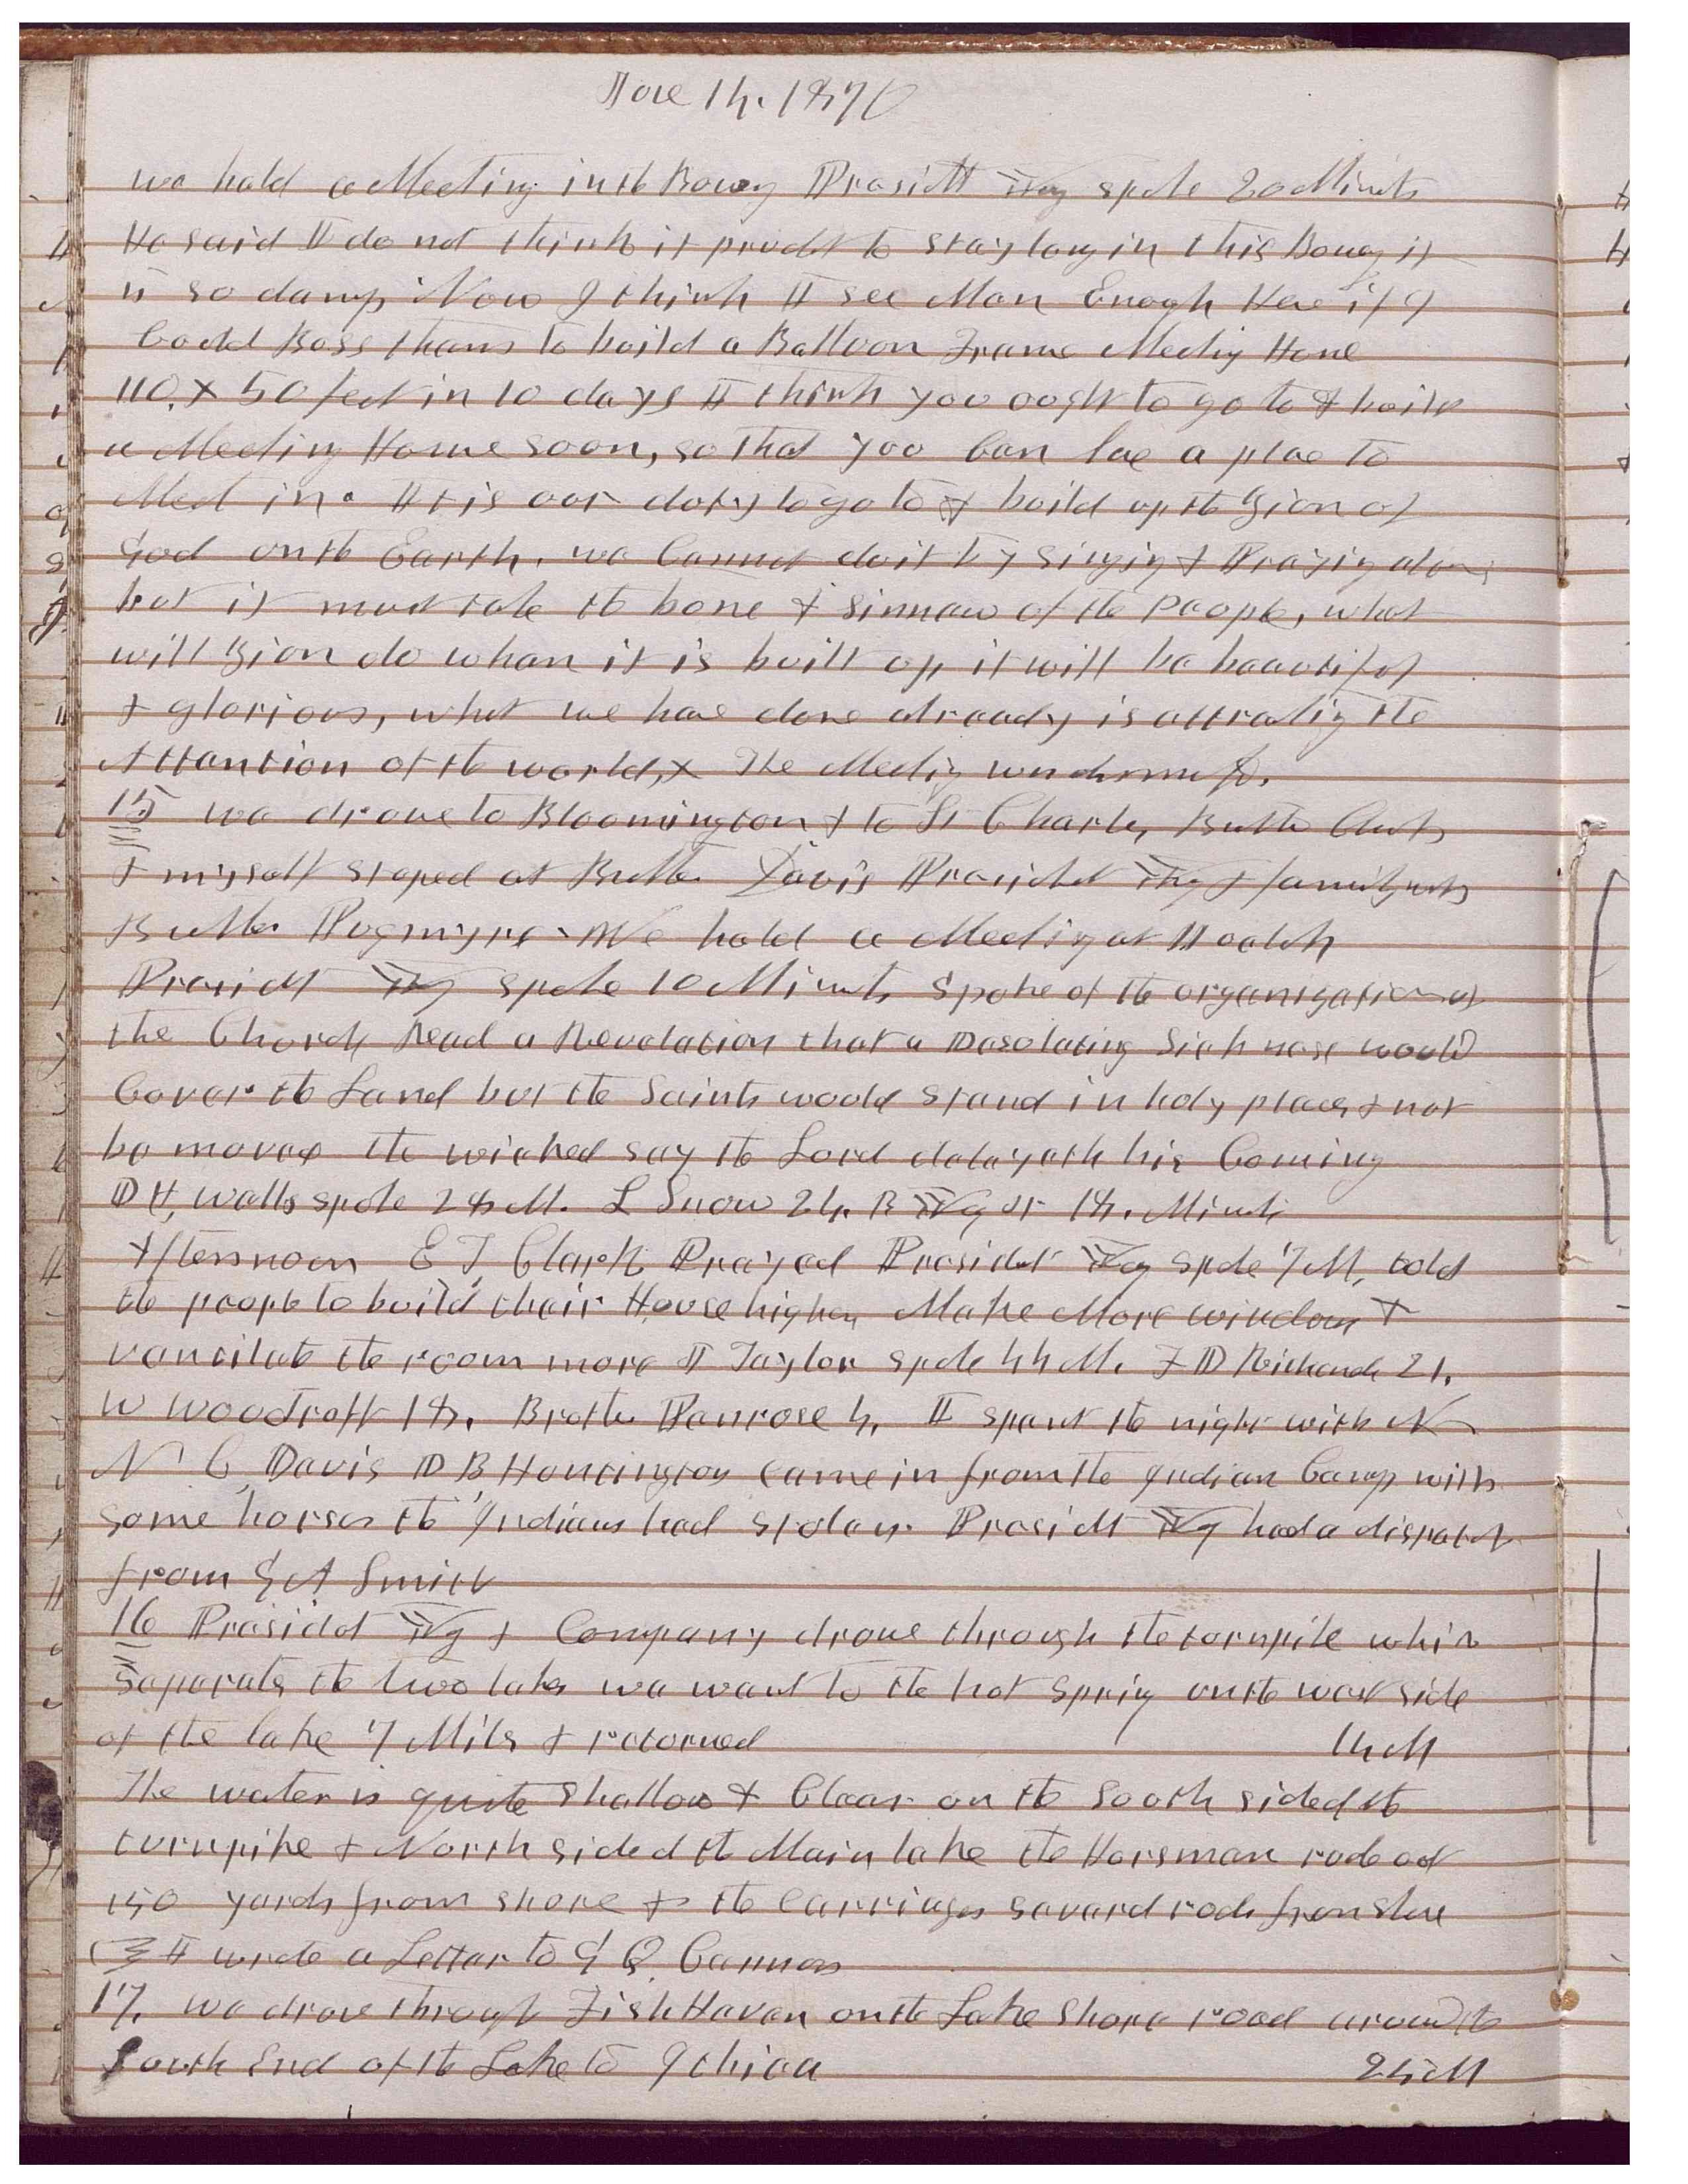 June 14. 1870
we held a Meeting in the Bowery Presidt Young spoke 20 Minuts
He said I do not think it prudet to stay long in this Bowery it
is so damp Now I think I see Men Enough Here if I
Could Boss them to build a Balloon Frame Meetig House
110 x 50 feet in 10 days I think you ought to go to & build
a Meeting House soon, so that you Can have a place to
Meet in. It is our duty to go to & build up the Zion of
God on the Earth. we Cannot do it by Singing & Praying alone
but it must take the bone & Sinnew of the People, what
will Zion do when it is built up it will be beautiful
& glorious, what we have done already is attractig the
Attention of the world, & The Meetig was dismissed.
15 we drove to Bloomington & to St Charles Brother
& myself stoped at Brother Davis Presidet Young & family with
Brother Pugmyre. We held a Meeting at
Presidt Young spoke 10 Minuts Spoke of the organization of
the Church Read a Revelation that a Desolating Sickness would
Cover the Land but the Saints would stand in holy places & not
be moved the wicked say the Lord delayeth his Coming
D H, Wells spoke 28 M. L Snow 24. B Young jr 18. Minuts
Afternoon E T Clark Prayed Presidet Young spoke 7 M, told
the people to build their House higher, Make More windows &
ventilate the room more J Taylor spoke 44 M. F D Richards 21.
W Woodruff 18. Brother Penrose 4. I spent the night with
N C Davis D B Huntington came in from the Indian Camp with
some horses the Indians had stolen. Presidt Young had a dispatch
from G A Smith
16 Presidet Young & Company drove through the turnpike which
Seperates the two lakes we went to the hot Spring on the west side
of the lake 7 Miles & returned 14 M
The water is quite Shallow & Clear on the South side of the
turnpike & North side of the Main lake the Horsman rode out
150 yards from shore & the Carriages several rods from shore
I wrote a Letter to G Q Cannon
17, we drove through Fish Haven on the Lake Shore road around to
South End of the Lake to 24 M